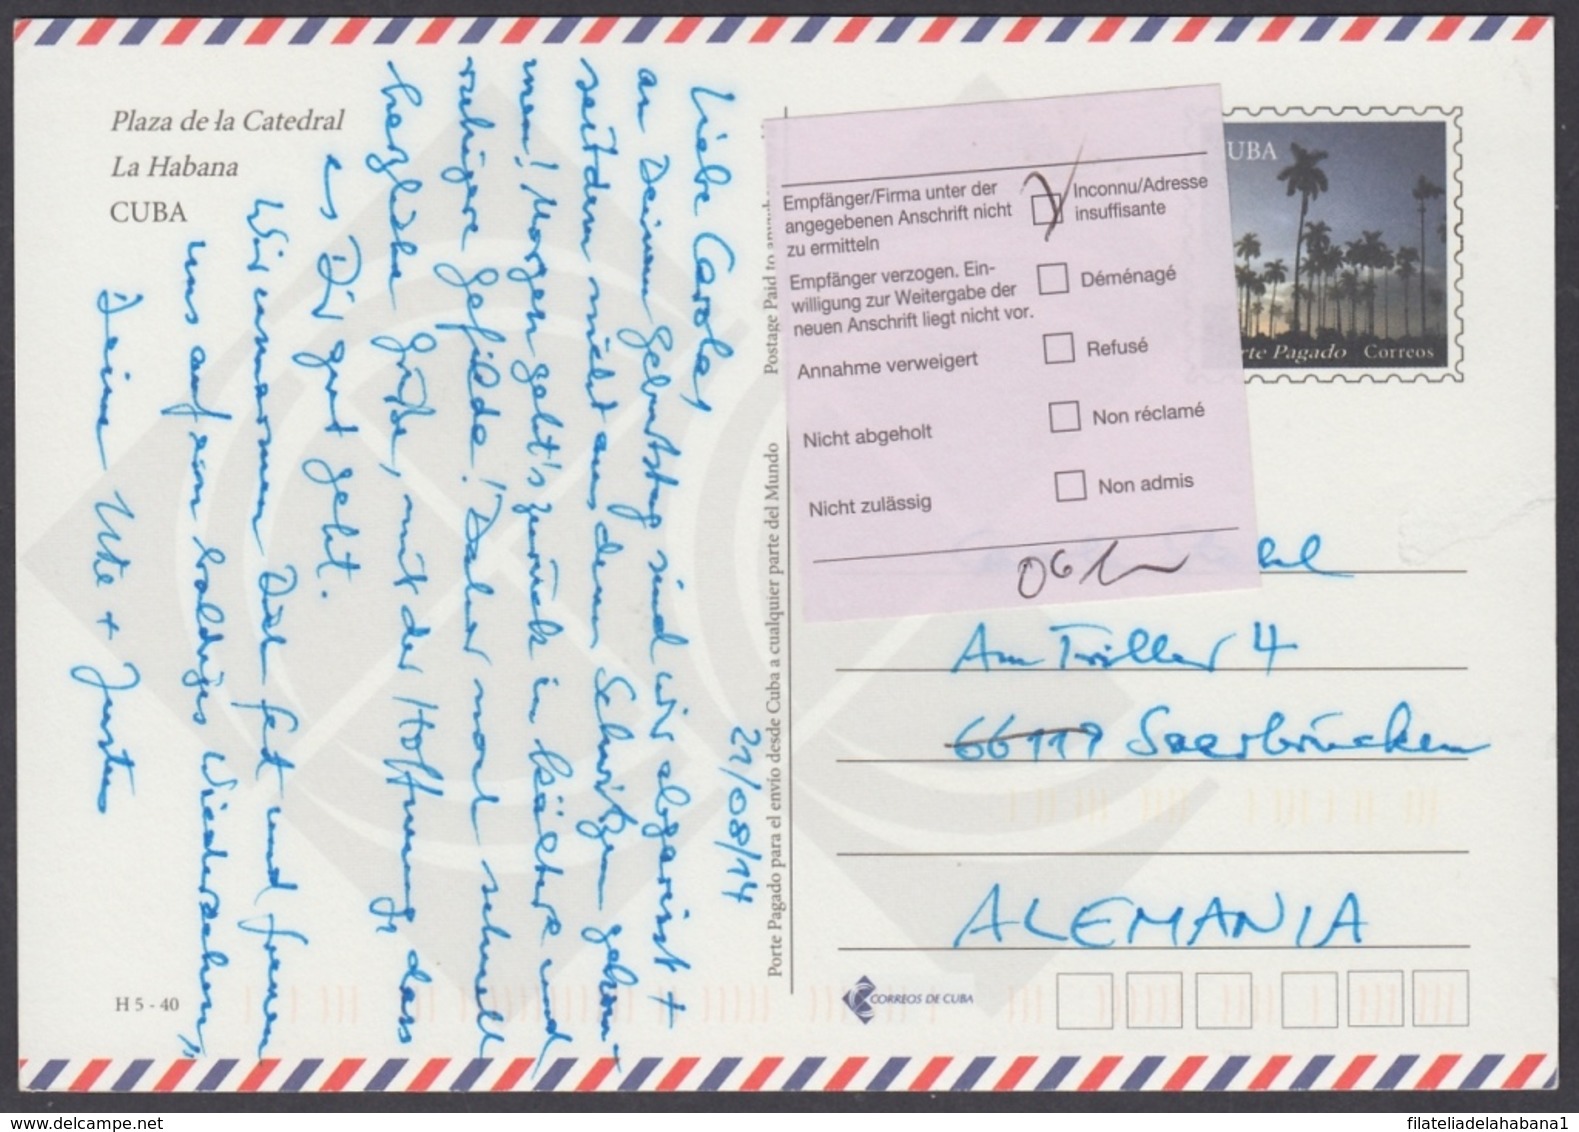 Plaza de la Catedral
La Habana
CUBA
22/08/14
Liebe Carola,
an Deinem Geburtstag sind wir abgereist +
seitdem nicht aus dem Schwitzen gekom-
men! Morgen geht's zurück in kältere und
ruhigere Gefilde! Daher mal schnell
herzliche Grüße, mit der Hoffnung, dass
es Dir gut geht.
Wir umarmen Dich fest und freuen
uns auf ein baldiges Wiedersehen,
Deine Ute + Justus
H 5 - 40
Postage Paid to
Porte Pagado para el envío desde Cuba a cualquier parte del Mundo
Empfänger/Firma unter der
angegebenen Anschrift nicht
zu ermitteln
Inconnu/Adresse
insuffisante
Empfänger verzogen. Ein-
willigung zur Weitergabe der
neuen Anschrift liegt nicht vor.
Déménagé
Annahme verweigert
Refusé
Nicht abgeholt
Non réclamé
Nicht zulässig
Non admis
UBA
rte Pagado Correos
Am Triller 4
66117 Saarbrücken
ALEMANIA
CORREOS DE CUBA
filateliadelahabana1